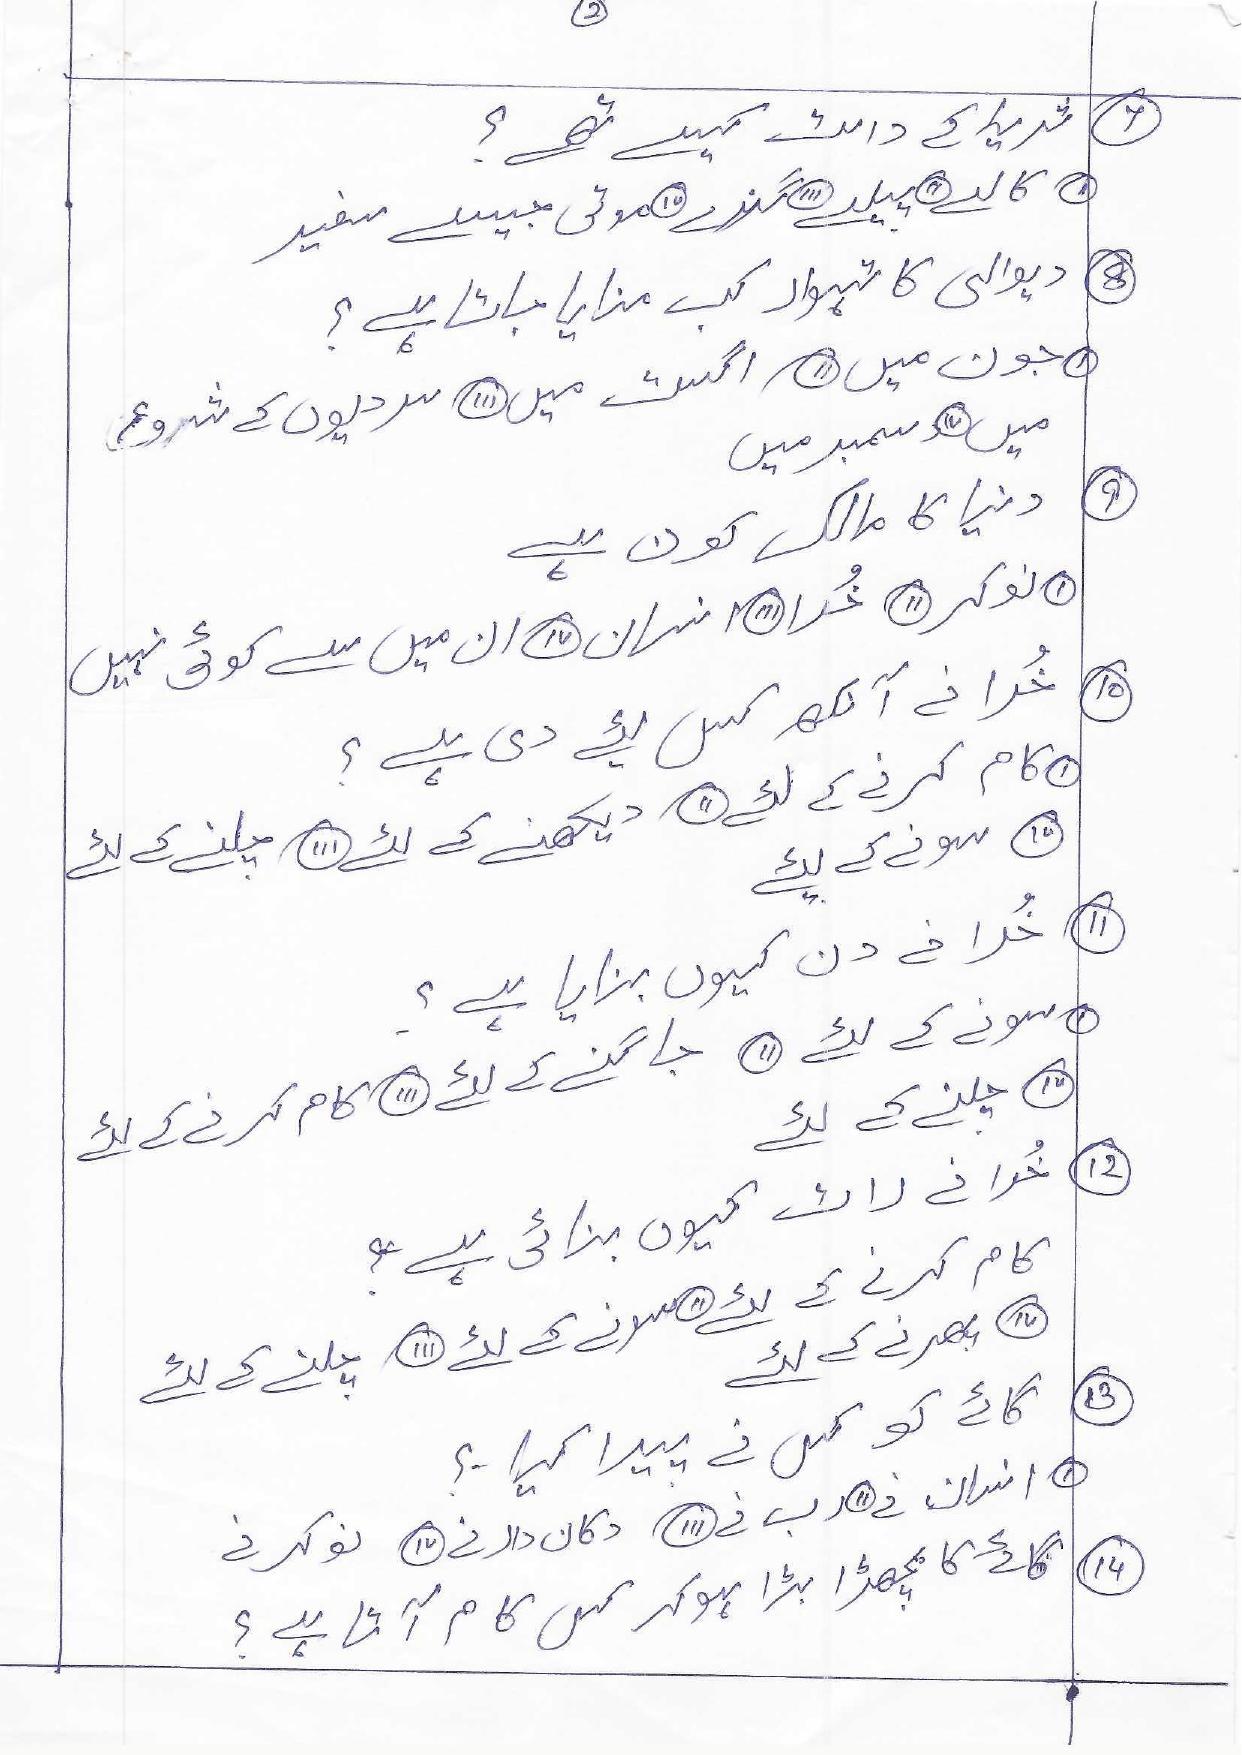 ②
⑦ ثریا کے دانت کیسے تھے؟
① کالے ⑪ پیلے ⑪ا گندے ⑩ موتی جیسے سفید
⑧ دیوالی کا تہوار کب منایا جاتا ہے؟
① جون میں (ii) اگست میں (iii) سردیوں کے شروع
میں (iv) دسمبر میں
⑨ دنیا کا مالک کون ہے
① نوکر (ii) خُدا (iii) انسان (iv) ان میں سے کوئی نہیں
⑩ خُدا نے آنکھ کس لئے دی ہے؟
① کام کرنے کے لئے (ii) دیکھنے کے لئے (iii) چلنے کے لئے
(iv) سونے کے لئے
⑪ خُدا نے دن کیوں بنایا ہے؟
① سونے کے لئے (ii) جاگنے کے لئے (iii) کام کرنے کے لئے
(iv) چلنے کے لئے
⑫ خُدا نے رات کیوں بنائی ہے؟
کام کرنے کے لئے (ii) سونے کے لئے (iii) چلنے کے لئے
(iv) پھرنے کے لئے
⑬ گائے کو کس نے پیدا کیا۔؟
① انسان نے (ii) رب نے (iii) دکان دار نے (iv) نوکر نے
⑭ گائے کا بچھڑا بڑا ہوکر کس کام آتا ہے؟